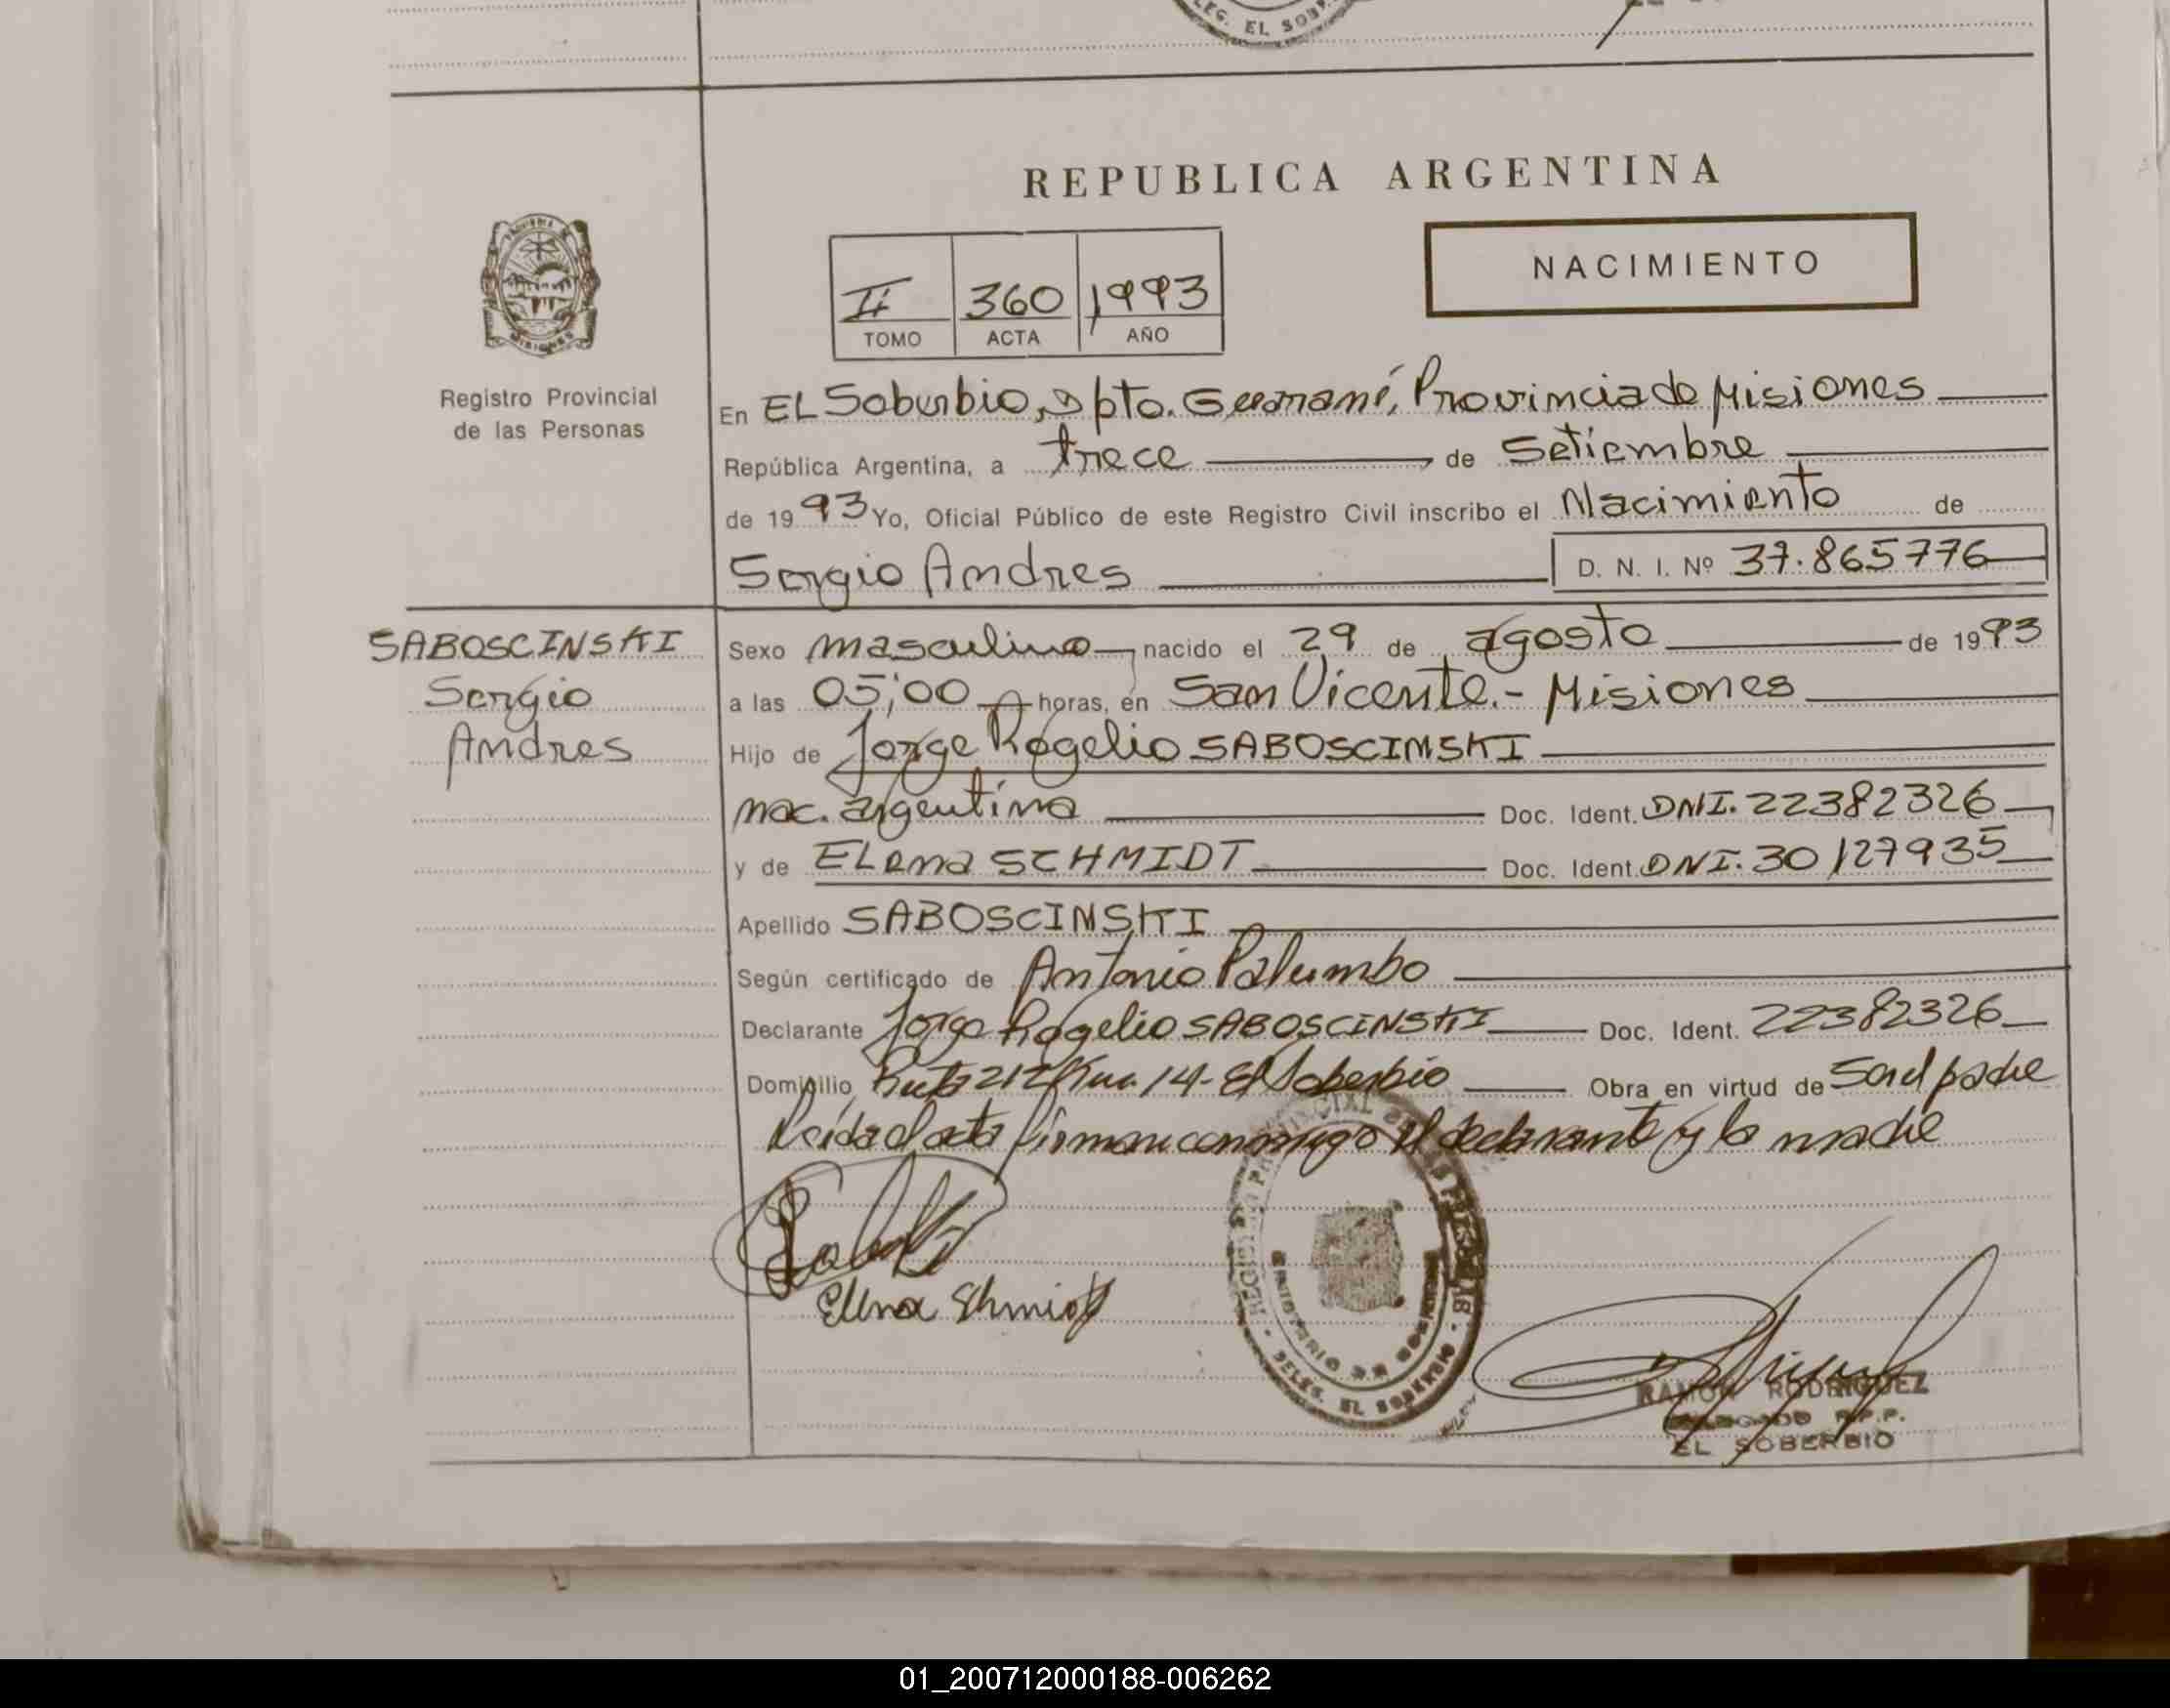 EL SOB
REPUBLICA ARGENTINA
NACIMIENTO
II 360 1993
TOMO ACTA AÑO
MISIONES
Registro Provincial
de las Personas
En EL Soberbio, Dpto. Guaraní, Provincia de Misiones
República Argentina, a trece de Setiembre
de 1993 Yo, Oficial Público de este Registro Civil inscribo el Nacimiento de
Sergio Andres D. N. I. Nº 37.865776
SABOSCINSKI
Sergio
Andres
Sexo masculino, nacido el 29 de agosto de 1993
a las 05;00 horas, en San Vicente.- Misiones
Hijo de Jorge Rogelio SABOSCINSKI
nac. argentina Doc. Ident. DNI. 22382326
y de ELena SCHMIDT Doc. Ident. DNI. 30127935
Apellido SABOSCINSKI
Según certificado de Antonio Palumbo
Declarante Jorge Rogelio SABOSCINSKI Doc. Ident. 22382326
Domicilio Ruta 212 Km. 14- El Soberbio Obra en virtud de Ser el padre
Leida el acta firman conmigo el declarante y la madre
Elena Shmidt
REGISTRO PROVINCIAL DE LAS PERSONAS
DELEG. EL SOBERBIO
RAMON RODRIGUEZ
DELEGADO R.P.P.
EL SOBERBIO
01_200712000188-006262